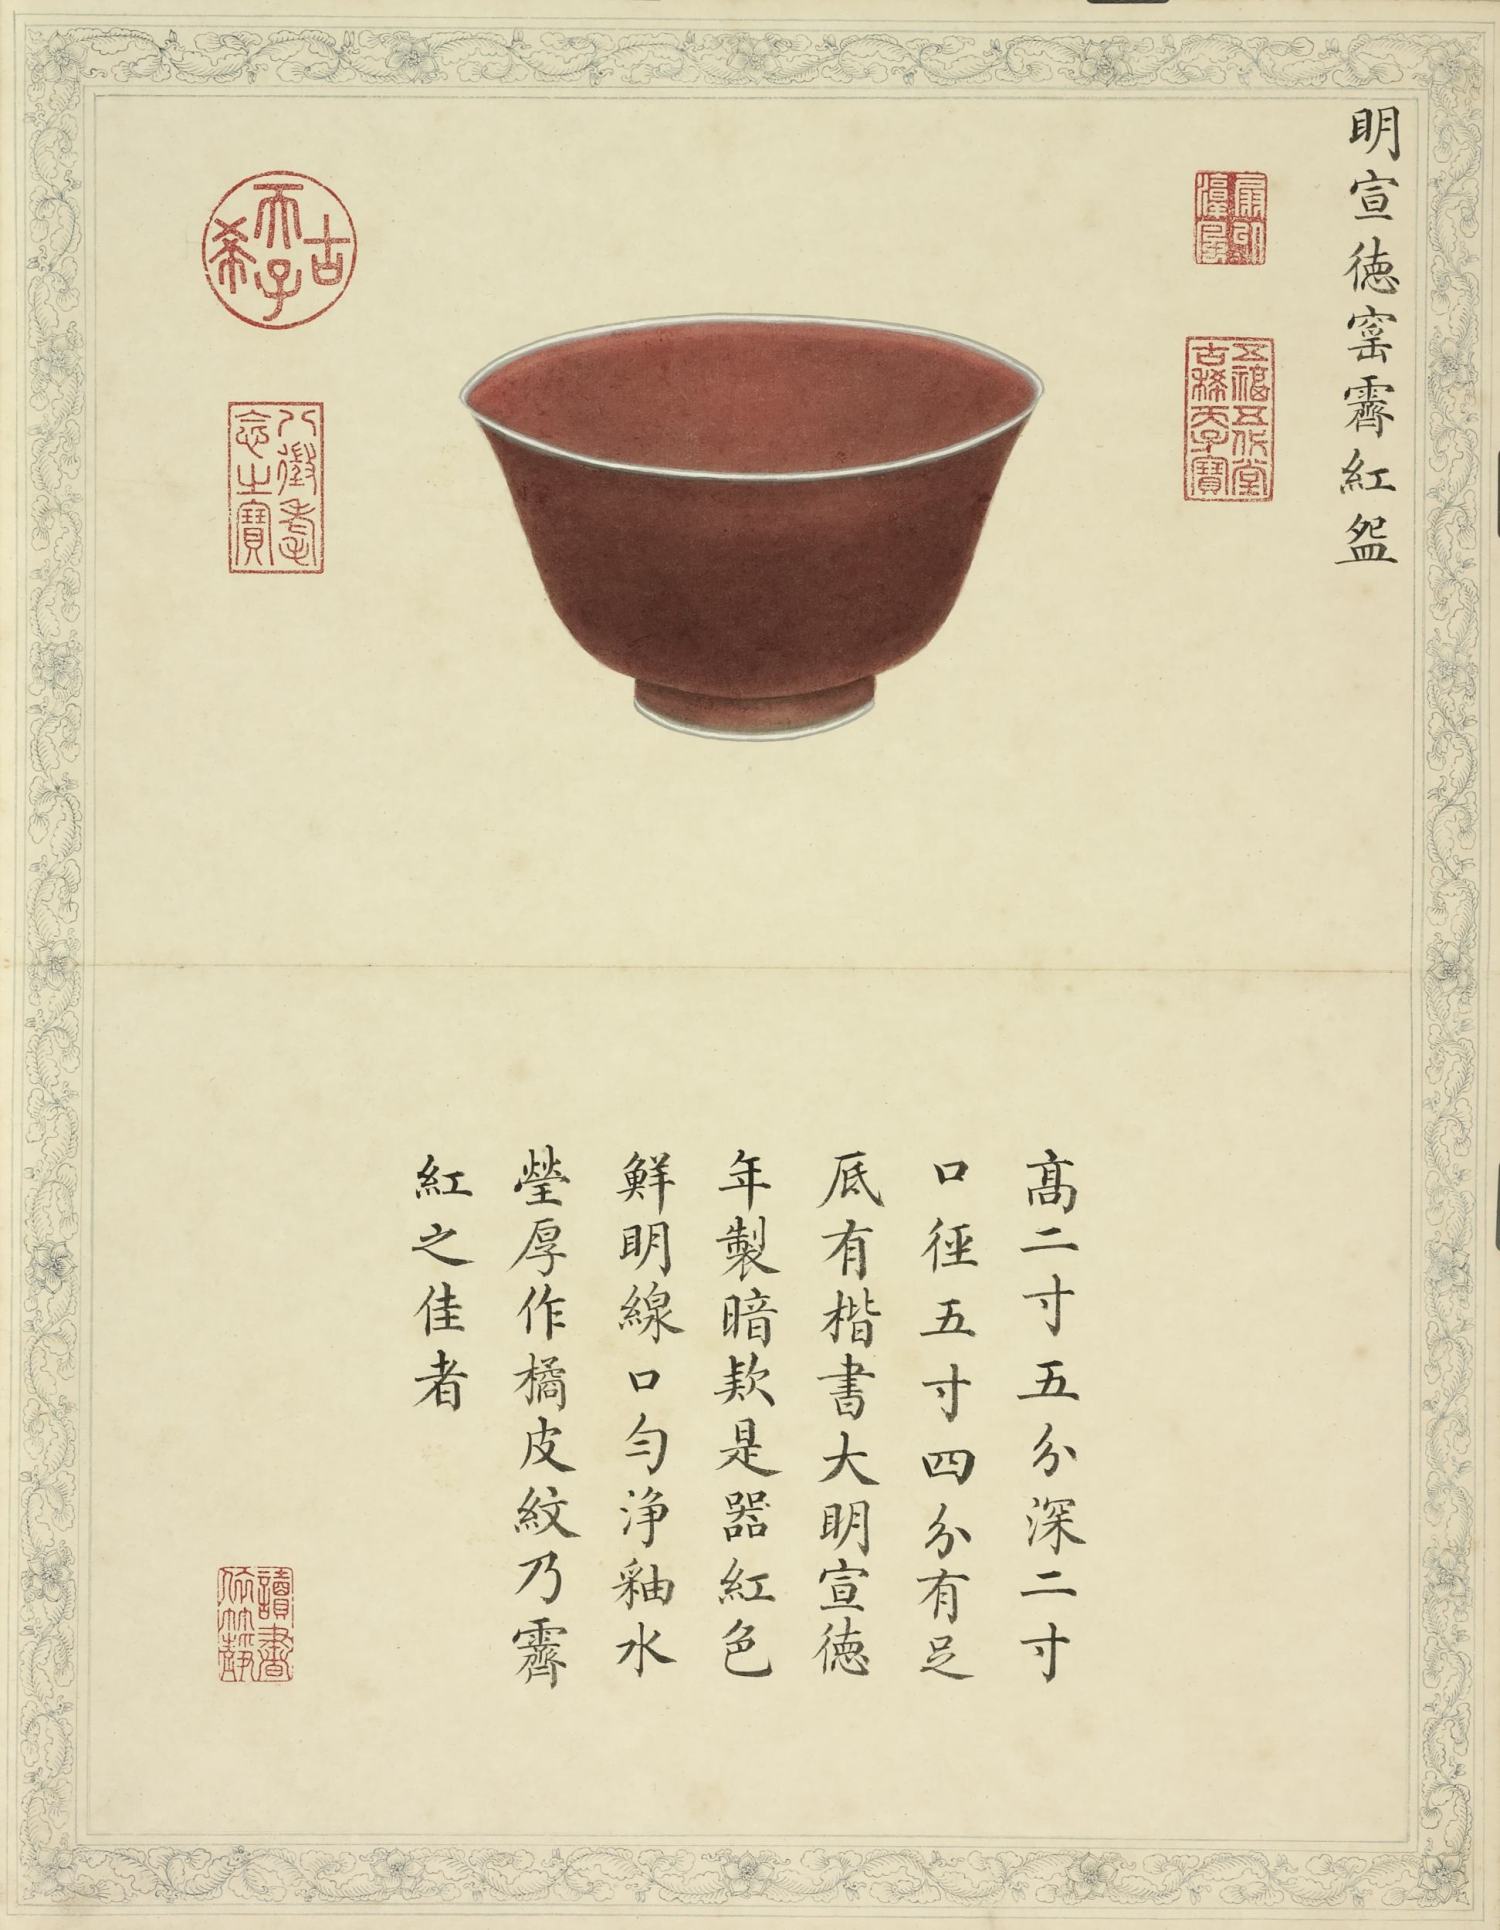 明宣徳窑霽紅盌
五福五代堂
古稀天子寶
古
天子
希
八徵耄
念之寶
高二寸五分深二寸
口徑五寸四分有足
底有楷書大明宣徳
年製暗款是器紅色
鮮明線口勻淨釉水
瑩厚作橘皮紋乃霽
紅之佳者
讀書
依竹靜